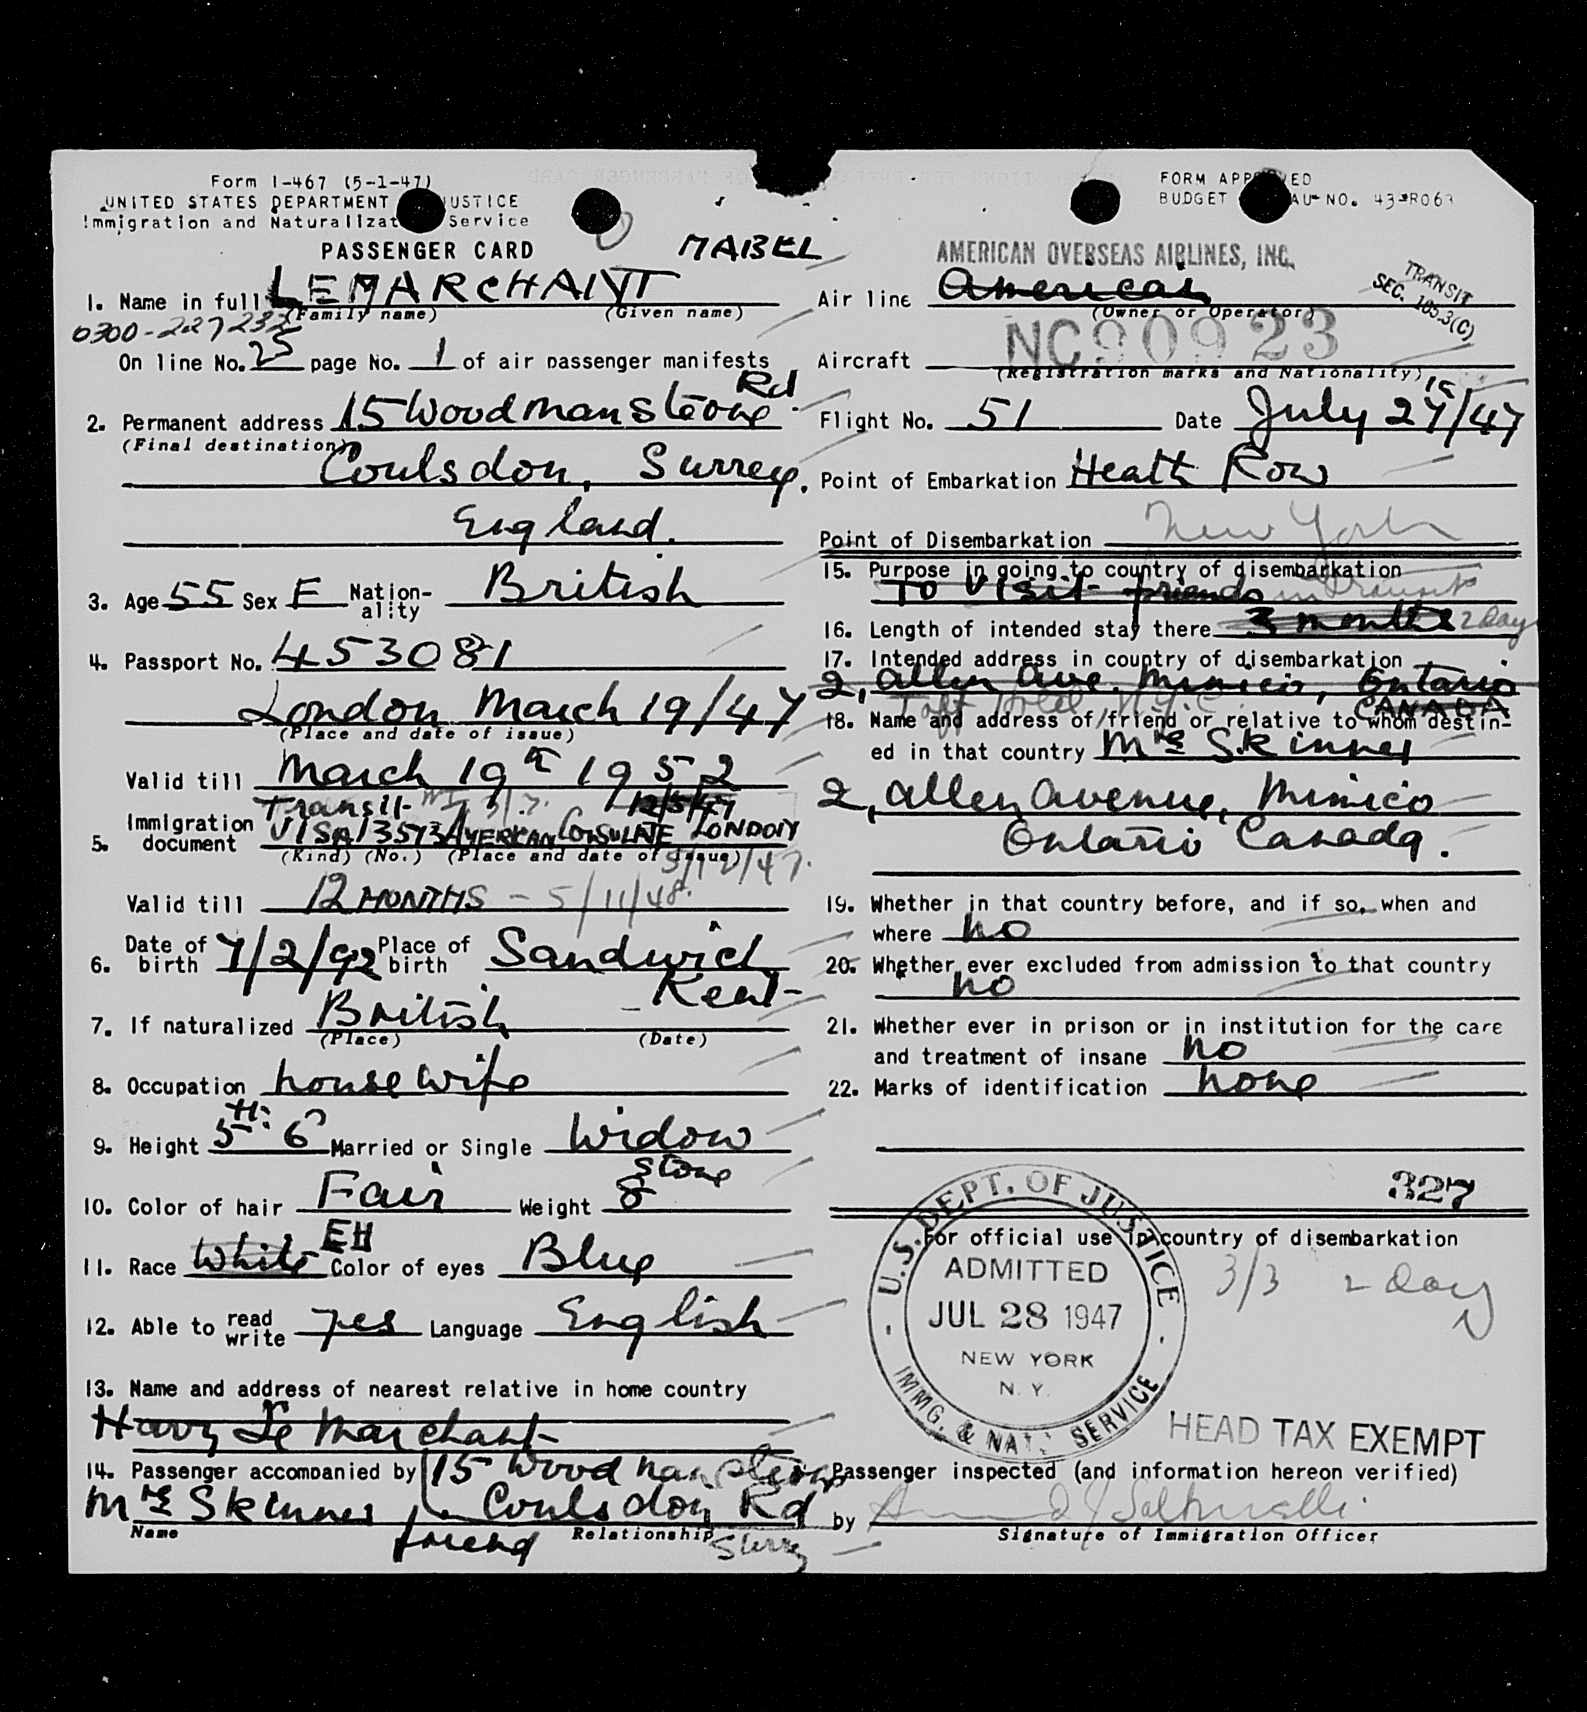 Form I-467 (5-1-47)
UNITED STATES DEPARTMENT USTICE
Immigration and Naturalizat Service
PASSENGER CARD
MABEL
1. Name in full LEMARCHANT
(Family name) (Given name)
0300-227232
On line No. 25 page No. 1 of air passenger manifests
2. Permanent address 15 Woodmansterne Rd
(Final destination)
Coulsdon, Surrey,
England.
3. Age 55 Sex F Nation-ality British
4. Passport No. 453081
London March 19/47
(Place and date of issue)
Valid till March 19th 1952
Transit 12/5/47
5. Immigration document VISA 13573 AMERICAN CONSULATE LONDON
(Kind) (No.) (Place and date of issue)
5/12/47.
Valid till 12 MONTHS - 5/11/48.
6. Date of birth 7/2/92 Place of birth Sandwich
Kent-
7. If naturalized British -
(Place) (Date)
8. Occupation housewife
9. Height 5ft: 6 Married or Single Widow
10. Color of hair Fair Weight 8 stone
11. Race White EH Color of eyes Blue
12. Able to read write yes Language English
13. Name and address of nearest relative in home country
Harry Le Marchant
14. Passenger accompanied by 15 Woodmansterne
Mrs Skinner Coulsdon Rd
Name Relationship
friend Surrey
FORM APP ED
BUDGET AU NO. 43-R063
AMERICAN OVERSEAS AIRLINES, INC.
Air line American
(Owner or Operator)
TRANSIT
SEC. 165.3(C)
Aircraft NC90923
(Registration marks and Nationality)
Flight No. 51 Date July 27/47
Point of Embarkation Heath Row
Point of Disembarkation New York
15. Purpose in going to country of disembarkation
To visit friends in transit
16. Length of intended stay there 3 months 2 Days
17. Intended address in country of disembarkation
2, Allen Ave. Mimico, Ontario
Taft Hotel N.Y.C. CANADA
18. Name and address of friend or relative to whom destin-
ed in that country Mrs Skinner
2, Allen Avenue, Mimico
Ontario Canada.
19. Whether in that country before, and if so, when and
where no
20. Whether ever excluded from admission to that country
no
21. Whether ever in prison or in institution for the care
and treatment of insane no
22. Marks of identification none
327
For official use in country of disembarkation
U.S. DEPT. OF JUSTICE
ADMITTED
JUL 28 1947
NEW YORK
N. Y.
IMMG. & NAT. SERVICE
3/3 2 days
HEAD TAX EXEMPT
Passenger inspected (and information hereon verified)
by
Signature of Immigration Officer